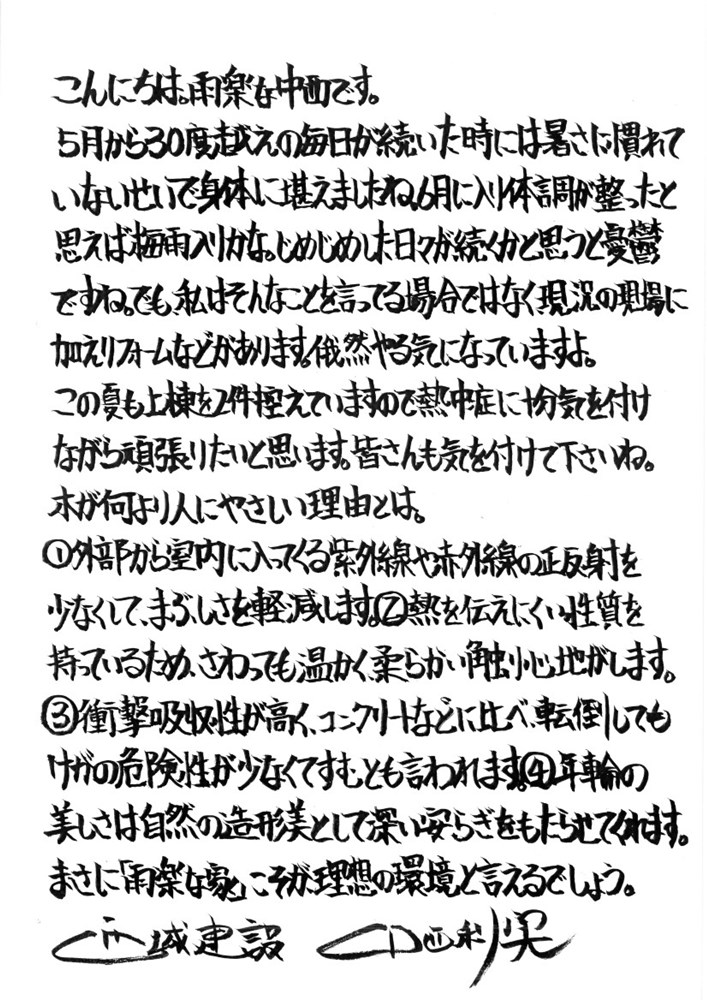 こんにちは。雨楽な中西です。
5月から30度越えの毎日が続いた時には暑さに慣れて
いないせいで身体に堪えましたね。6月に入り体調が整ったと
思えば梅雨入りかな。じめじめした日々が続くかと思うと憂鬱
ですね。でも、私はそんなことを言ってる場合ではなく現況の現場に
加えリフォームなどがあります。俄然やる気になっていますよ。
この夏も上棟を2件控えていますので熱中症に十分気を付け
ながら頑張りたいと思います。皆さんも気を付けて下さいね。
木が何より人にやさしい理由とは。
①外部から室内に入ってくる紫外線や赤外線の正反射を
少なくして、まぶしさを軽減します。②熱を伝えにくい性質を
持っているため、さわっても温かく、柔らかい触り心地がします。
③衝撃吸収性が高く、コンクリートなどに比べ、転倒しても
ケガの危険性が少なくてすむとも言われます。④年輪の
美しさは自然の造形美として深い安らぎをもたらせてくれます。
まさに「雨楽な家」こそが理想の環境と言えるでしょう。
城建設 西利